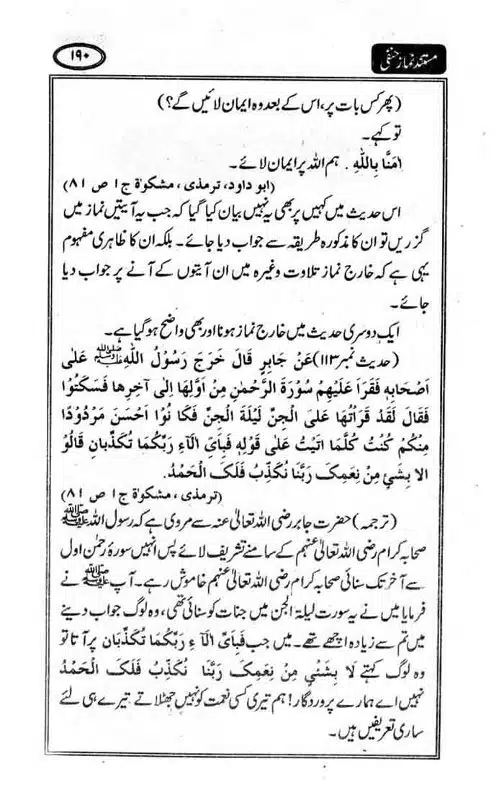 مستند نماز حنفی
۱۹۰
(پھر کس بات پر، اس کے بعد وہ ایمان لائیں گے؟)
تو کہے۔
اٰمَنَّا بِاللّٰهِ . ہم اللہ پر ایمان لائے۔
(ابو داود، ترمذی، مشکوۃ ج ۱ ص ۸۱)
اس حدیث میں کہیں پر بھی یہ نہیں بیان کیا گیا کہ جب یہ آیتیں نماز میں
گزریں تو ان کا مذکورہ طریقہ سے جواب دیا جائے۔ بلکہ ان کا ظاہری مفہوم
یہی ہے کہ خارج نماز تلاوت وغیرہ میں ان آیتوں کے آنے پر جواب دیا
جائے۔
ایک دوسری حدیث میں خارج نماز ہونا اور بھی واضح ہو گیا ہے۔
(حدیث نمبر ۱۱۳) عَنْ جَابِرٍ قَالَ خَرَجَ رَسُوْلُ اللّٰهِ ﷺ عَلٰى
اَصْحَابِهٖ فَقَرَأَ عَلَيْهِمْ سُوْرَةَ الرَّحْمٰنِ مِنْ اَوَّلِهَا اِلٰى آخِرِهَا فَسَكَتُوْا
فَقَالَ لَقَدْ قَرَأْتُهَا عَلَى الْجِنِّ لَيْلَةَ الْجِنِّ فَكَا نُوْا اَحْسَنَ مَرْدُوْدًا
مِنْكُمْ كُنْتُ كُلَّمَا اَتَيْتُ عَلٰى قَوْلِهٖ فَبِاَىِّ اٰلَآءِ رَبِّكُمَا تُكَذِّبَانِ قَالُوْ
الا بِشَئْیٍ مِنْ نِعَمِكَ رَبَّنَا نُكَذِّبُ فَلَكَ الْحَمْدُ.
(ترمذی، مشکوۃ ج ۱ ص ۸۱)
(ترجمہ) حضرت جابر رضی اللہ تعالیٰ عنہ سے مروی ہے کہ رسول اللہ ﷺ
صحابہ کرام رضی اللہ تعالیٰ عنہم کے سامنے تشریف لائے پس انہیں سورۂ رحمٰن اول
سے آخر تک سنائی صحابہ کرام رضی اللہ تعالیٰ عنہم خاموش رہے۔ آپ ﷺ نے
فرمایا میں نے یہ سورت لیلۃ الجن میں جنات کو سنائی تھی، وہ لوگ جواب دینے
میں تم سے زیادہ اچھے تھے۔ میں جب فَبِاَىِّ اٰلَآءِ رَبِّكُمَا تُكَذِّبَانِ پر آتا تو
وہ لوگ کہتے لَا بِشَئْیٍ مِنْ نِعَمِكَ رَبَّنَا نُكَذِّبُ فَلَكَ الْحَمْدُ
نہیں اے ہمارے پروردگار! ہم تیری کسی نعمت کو نہیں جھٹلاتے تیرے ہی لئے
ساری تعریفیں ہیں۔